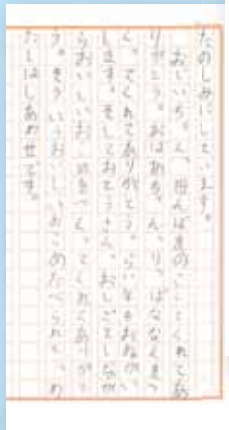 たのしみにしています。
おじいちゃん、田んぼをのこしてくれてあ
りがとう。おばあちゃん、りっぱななえをつ
くってくれてありがとう。らい年もおねがい
します。そしておとうさん、おしごとしなが
らおいしいお米をつくってくれてありがと
う。そういうおいしいおこめたべられて、わ
たしはしあわせです。